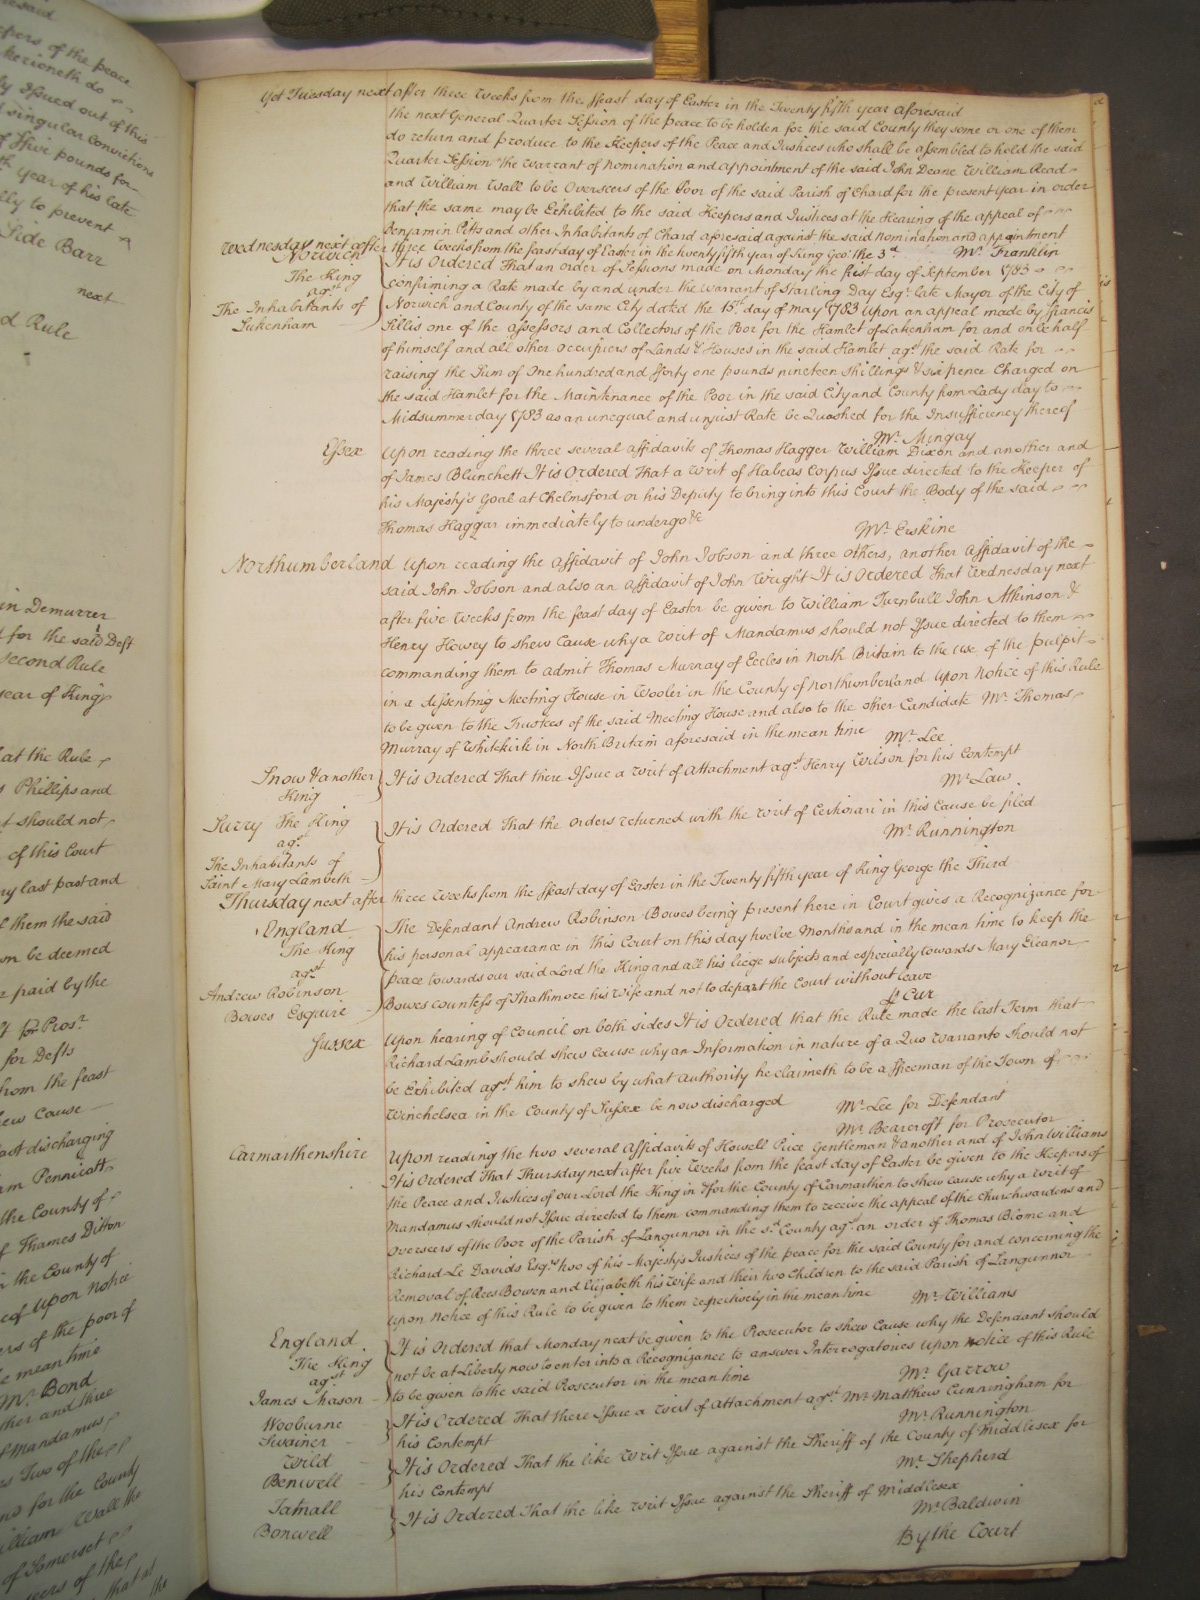 Yet Tuesday next after three Weeks from the ffeast day of Easter in the Twenty fifth year aforesaid
the next General Quarter Session of the peace to be holden for the said County they some or one of them
do return and produce to the Keepers of the Peace and Justices who shall be assembled to hold the said
Quarter Session the Warrant of Nomination and appointment of the said John Deane William Read
and William Wall to be Overseers of the Poor of the said Parish of Chard for the present year in order
that the same may be Exhibited to the said Keepers and Justices at the Hearing of the appeal of
Benjamin Pitts and other Inhabitants of Chard aforesaid against the said nomination and appointment
Wednesday next after three Weeks from the feast day of Easter in the twenty fifth year of King Geo: the 3d Mr. Franklin
Norwich
The King
agst
The Inhabitants of
Lakenham
It is Ordered That an order of Sessions made on Monday the first day of September 1783
confirming a Rate made by and under the Warrant of Starling Day Esqr. late Mayor of the City of
Norwich and County of the same City dated the 15th day of May 1783 upon an appeal made by ffrancis
Sillis one of the assessors and Collectors of the Poor for the Hamlet of Lakenham for and on behalf
of himself and all other Occupiers of Lands & Houses in the said Hamlet agst the said Rate for
raising the Sum of One hundred and fforty one pounds nineteen shillings & sixpence Charged on
the said Hamlet for the Maintenance of the Poor in the said City and County from Lady day to
Midsummer day 1783 as an unequal and unjust Rate be Quashed for the Insufficiency thereof
Mr. Mingay
Essex Upon reading the three several affidavits of Thomas Hagger William Dixon and another and
of James Blunchett It is Ordered That a Writ of Habeas Corpus Issue directed to the Keeper of
his Majesty's Goal at Chelmsford or his Deputy to bring into this Court the Body of the said
Thomas Haggar immediately to undergo &c
Mr. Erskine
Northumberland Upon reading the affidavit of John Jobson and three others, another Affidavit of the
said John Jobson and also an Affidavit of John Wright It is Ordered That Wednesday next
after five Weeks from the feast day of Easter be given to William Turnbull John Atkinson &
Henry Howey to shew Cause why a Writ of Mandamus should not Issue directed to them
commanding them to admit Thomas Murray of Eccles in North Britain to the use of the pulpit
in a dissenting Meeting House in Wooler in the County of Northumberland Upon Notice of this Rule
to be given to the Trustees of the said Meeting House and also to the other Candidate Mr. Thomas
Murray of Whitekirk in North Britain aforesaid in the mean time Mr. Lee
Snow & another
King
It is Ordered That there Issue a Writ of Attachment agst Henry Wilson for his Contempt
Mr. Law
Surry The King
agst
The Inhabitants of
Saint Mary Lambeth
It is Ordered That the Orders returned with the Writ of Certiorari in this Cause be filed
Mr. Runnington
Thursday next after three Weeks from the ffeast day of Easter in the Twenty fifth year of King George the Third
England
The King
agst
Andrew Robinson
Bowes Esquire
The Defendant Andrew Robinson Bowes being present here in Court gives a Recognizance for
his personal appearance in this Court on this day twelve Months and in the mean time to keep the
peace towards our said Lord the King and all his liege subjects and especially towards Mary Eleanor
Bowes countess of Strathmore his Wife and not to depart the Court without leave
p Cur
Sussex Upon hearing of Council on both sides It is Ordered that the Rule made the last Term that
Richard Lamb should shew Cause why an Information in nature of a Quo Warranto should not
be Exhibited agst him to shew by what authority he claimeth to be a ffreeman of the Town of
Winchelsea in the County of Sussex be now discharged
Mr. Lee for Defendant
Mr. Bearcroft for Prosecutor
Carmarthenshire Upon reading the two several Affidavits of Howell Price Gentleman & another and of John Williams
It is Ordered That Thursday next after five Weeks from the feast day of Easter be given to the Keepers of
the Peace and Justices of our Lord the King in & for the County of Carmarthen to shew cause why a Writ of
Mandamus should not Issue directed to them commanding them to receive the appeal of the Churchwardens and
Overseers of the Poor of the Parish of Langunnor in the sd. County agst an order of Thomas Blome and
Richard Le Davids Esqrs two of his Majesty's Justices of the peace for the said County for and concerning the
Removal of Rees Bowen and Elizabeth his Wife and their two Children to the said Parish of Langunnor
upon Notice of this Rule to be given to them respectively in the mean time
Mr. Williams
England
The King
agst
James Mason
It is Ordered that Monday next be given to the Prosecutor to shew Cause why the Defendant should
not be at Liberty now to enter into a Recognizance to answer Interrogatories upon Notice of this Rule
to be given to the said Prosecutor in the mean time
Mr. Garrow
Wooburne
Swainer
It is Ordered That there Issue a Writ of attachment agst Mr. Matthew Cunningham for
his Contempt
Mr. Runnington
Wild
Benwell
It is Ordered That the like Writ Issue against the Sheriff of the County of Middlesex for
his Contempt
Mr. Shepherd
Tatnall
Bonwell
It is Ordered That the like Writ Issue against the Sheriff of Middlesex
Mr. Baldwin
By the Court